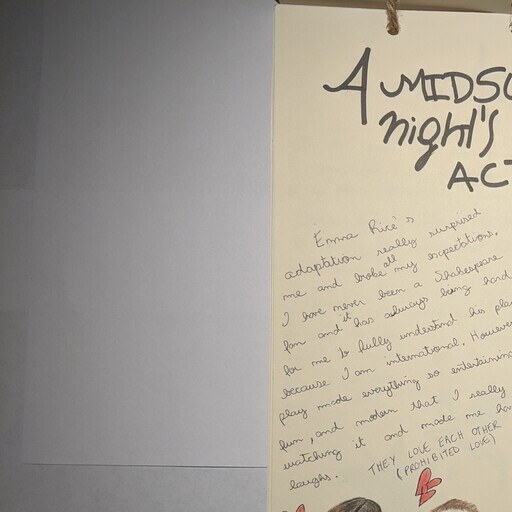 A MIDSU
night's
ACT
Emma Rice's
adaptation really surprised
me and broke all my expectations.
I have never been a Shakespeare
fan and it has always being hard
for me to fully understand his play
because I am international. However
play made everything so entertaining
fun, and modern that I really
watching it and made me ha
laughs.
THEY LOVE EACH OTHER
(PROHIBITED LOVE)